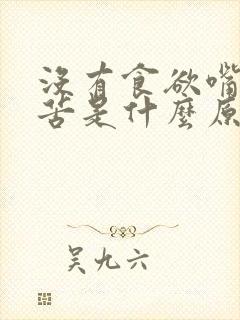 没有食欲嘴
苦是什麼原
吴九六